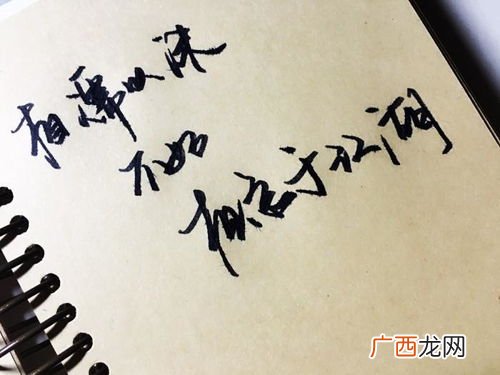 相濡以沫
不如
相忘于江湖
广西龙网